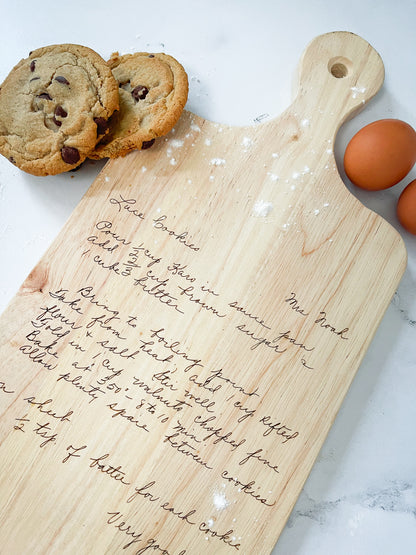 Lace Cookies
Mrs Noah
Pour 1/2 cup Karo in sauce pan
add 2/3 cup brown sugar &
1 cube butter
Bring to boiling point
Take from heat, add 1 cup sifted
flour & salt stir well
Fold in 1 cup walnuts chopped fine
Bake at 350 - 8 to 10 min
Allow plenty space between cookies
n sheet
1/2 tsp of batter for each cookie
Very good